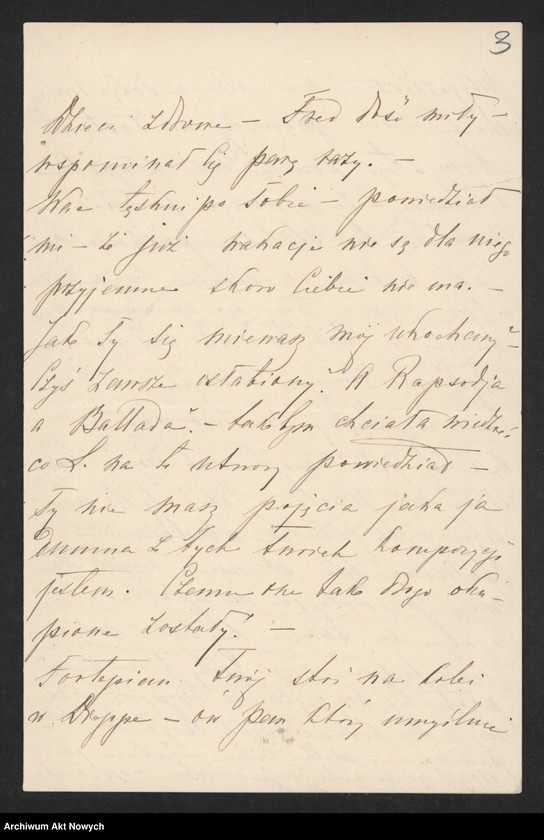 3
Dzieci zdrowe – Fred dość miły –
wspominał Cię parę razy. –
Wac tęskni po Tobie – powiedział
mi – że już wakacje nie są dla niego
przyjemne skoro Ciebie nie ma. –
Jak Ty się miewasz mój ukochany? –
Czyś zawsze osłabiony? A Rapsodja
a Ballada? – takbym chciała wiedzieć
co L. na te utwory powiedział –
Ty nie masz pojęcia jaka ja
dumna z tych Twoich kompozycji
jestem. Czemu one tak drogo oku-
pione zostały? –
Fortepian Twój stoi na kolei
w – ów pan który umyślnie
Archiwum Akt Nowych